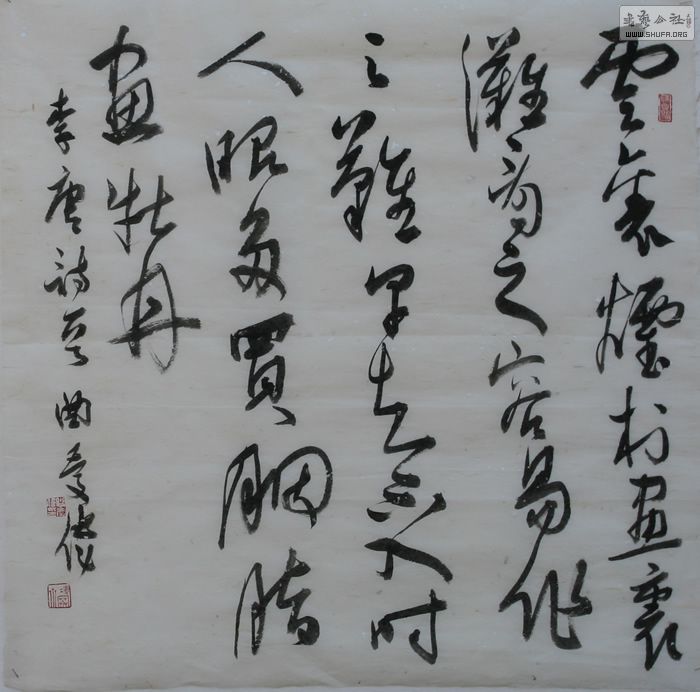 雲裏煙村畫裏
灘看之容易作
之難早知不入時
人眼多買胭脂
畫牡丹
李唐詩 曲
书艺公社
WWW.SHUFA.ORG